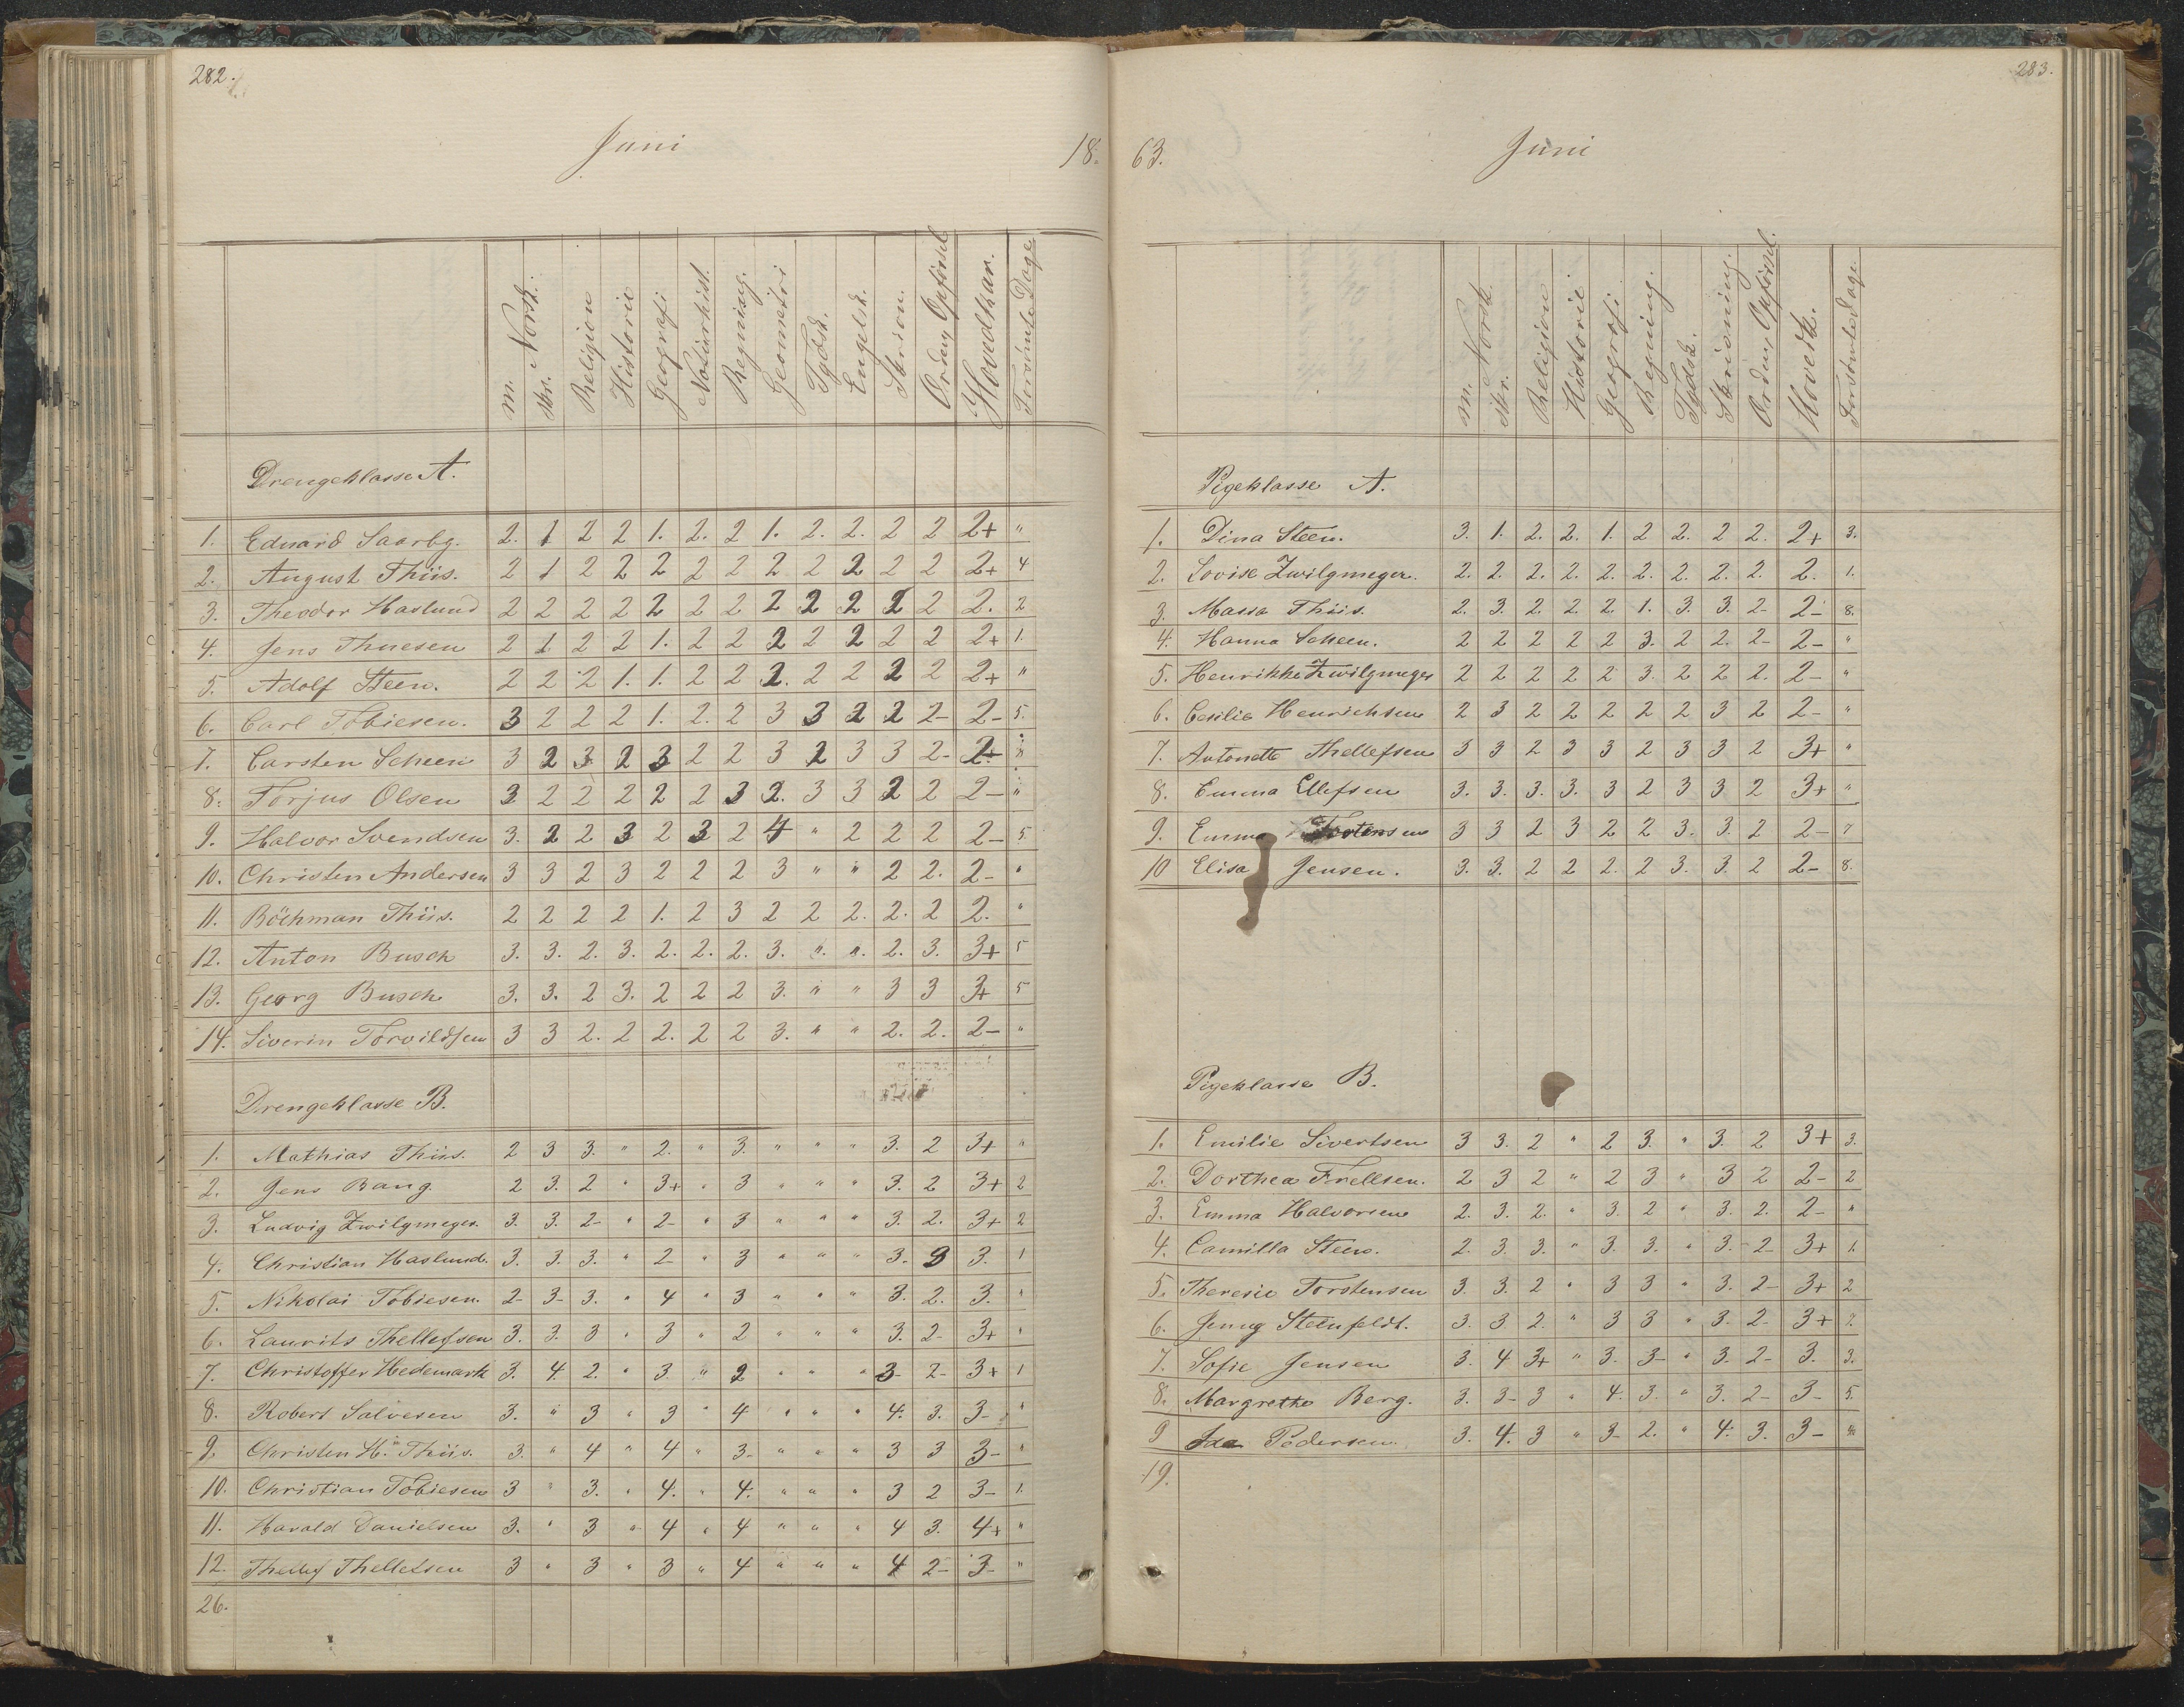 282.
Juni
18.
m. skr. Norsk. Religion Historie Geografi Naturhist. Regning. Geometri Tydsk. Engelsk. Skrivn. Orden, Opførsel Hovedkar. Forsømte Dage
Drengeklasse A.
1. Eduard Saarbg. 2. 1 2 2 1. 2. 2 1. 2. 2. 2 2 2+ "
2. August Thiis. 2 1 2 2 2 2 2 2 2 2 2 2 2+ 4
3. Theodor Haslund 2 2 2 2 2 2 2 2 2 2 2 2 2. 2
4. Jens Thuesen 2 1 2 2 1. 2 2 2 2 2 2 2 2+ 1.
5. Adolf Steen. 2 2 2 1. 1. 2 2 2. 2 2 2 2 2+ "
6. Carl Tobiesen. 3 2 2 2 1. 2. 2 3 3 2 2 2- 2- 5.
7. Carsten Scheen 3 2 3 2 3 2 2 3 2 3 3 2-
8. Torjus Olsen 3 2 2 2 2 2 3 2. 3 3 2 2 2- "
9. Halvor Svendsen 3. 2 2 3 2 3 2 4 " 2 2 2 2- 5.
10. Christen Andersen 3 3 2 3 2 2 2 3 " " 2 2. 2- "
11. Böchman Thiis. 2 2 2 2 1. 2 3 2 2 2. 2. 2 2. "
12. Anton Busch 3. 3. 2. 3. 2. 2. 2. 3. ". ". 2. 3. 3+ 5
13. Georg Busch 3. 3. 2 3. 2 2 2 3. " " 3 3 3+ 5
14. Siverin Torvildsen 3 3 2. 2 2. 2 2 3. " " 2. 2. 2- "
Drengeklasse B.
1. Mathias Thiis. 2 3 3. " 2. " 3. " " " 3. 2 3+ "
2. Jens Bang. 2 3. 2 " 3+ " 3 " " " 3. 2 3+ 2
3. Ludvig Zwilgmeger. 3. 3. 2- " 2- " 3 " " " 3. 2. 3+ 2
4. Christian Haslund. 3. 3. 3. " 2- " 3 " " " 3. 3 3. 1
5. Nikolai Tobiesen. 2- 3- 3. " 4 " 3 " " " 3. 2. 3. "
6. Laurits Thellefsen 3. 3. 3 " 3 " 2 " " " 3. 2- 3+ "
7. Christoffer Hedemark 3. 4. 2. " 3. " 2 " " " 3- 2- 3+ 1
8. Robert Salvesen 3. " 3 " 3 " 4 " " " 4. 3. 3- "
9. Christen H. Thiis. 3. " 4 " 4 " 3- " " " 3 3 3- "
10. Christian Tobiesen 3 " 3. " 4. " 4. " " " 3 2 3- 1.
11. Harald Danielsen 3. " 3 " 4 " 4 " " " 4 3. 4+ "
12. Thellef Thellefsen 3 " 3 " 3 " 4 " " " 4 2- 3- "
26.
283.
63.
Juni
m. skr. Norsk. Religion Historie Geografi. Regning. Tydsk. Skrivning. Orden, Opførsel. Hovedk. Forsømte Dage.
Pigeklasse A.
1. Dina Steen. 3. 1. 2. 2. 1. 2 2. 2 2. 2+ 3.
2. Lovise Zwilgmeger. 2. 2. 2. 2. 2. 2. 2. 2. 2. 2. 1.
3. Massa Thiis. 2. 3. 2. 2. 2. 1. 3. 3. 2- 2- 8.
4. Hanna Scheen. 2 2 2 2 2 3. 2 2. 2- 2- "
5. Henrikke Zwilgmeger 2 2 2 2 2 3. 2 2 2. 2- "
6. Cesilie Henrichsen 2 3 2 2 2 2 2 3 2 2- "
7. Antonette Thellefsen 3 3 2 3 3 2 3 3 2 3+ "
8. Emma Ellefsen 3. 3. 3. 3. 3 2 3 3 2 3+ "
9. Emma Torstensen 3 3 2 3 2 2 3. 3. 2 2- 7
10 Elisa Jensen. 3. 3. 2 2 2. 2 3. 3. 2 2- 8.
Pigeklasse B.
1. Emilie Sivertsen 3 3. 2 " 2 3. " 3. 2 3+ 3.
2. Dorthea Frellsen. 2 3 2 " 2 3 " 3 2 2- 2
3. Emma Halvorsen 2. 3. 2. " 3. 2 " 3. 2. 2- "
4. Camilla Steen. 2. 3. 3. " 3. 3. " 3. 2- 3+ 1.
5. Theresie Torstensen 3. 3. 2 " 3 3 " 3. 2- 3+ 2
6. Jenny Steenfeldt. 3. 3. 2. " 3 3 " 3. 2- 3+ 7.
7. Sofie Jensen 3. 4 3+ " 3. 3- " 3. 2- 3. 3.
8. Margrethe Berg. 3. 3- 3 " 4. 3. " 3. 2- 3- 5.
9 Ida Pedersen. 3. 4. 3 " 3- 2. " 4. 3. 3-
19.